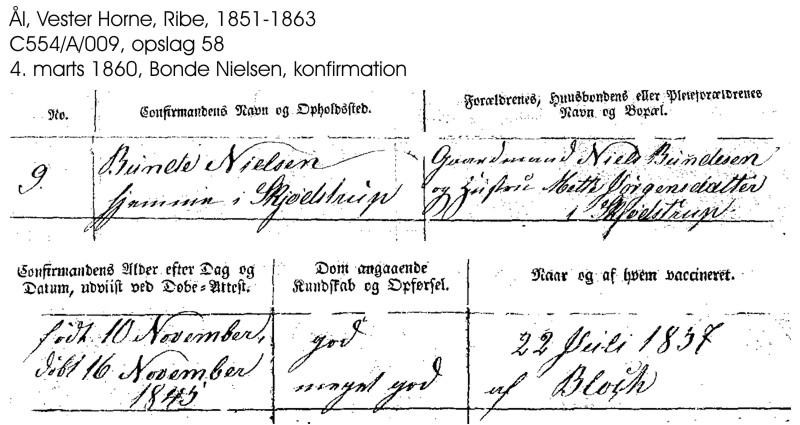 Ål, Vester Horne, Ribe, 1851-1863
C554/A/009, opslag 58
4. marts 1860, Bonde Nielsen, konfirmation
No.
Confirmandens Navn og Opholdssted.
Forældrenes, Huusbondens eller Pleieforældrenes
Navn og Bopæl.
9.
Bunde Nielsen
hjemme i Skjødstrup
Gaardmand Niels Bundesen
og Hustru Meth Jørgensdatter
i Skjødstrup
Confirmandens Alder efter Dag og
Datum, udviist ved Døbe-Attest.
Dom angaaende
Kundskab og Opførsel.
Naar og af hvem vaccineret.
født 10 November,
døbt 16 November
1845
god
meget god
22 Juli 1857
af Bloch